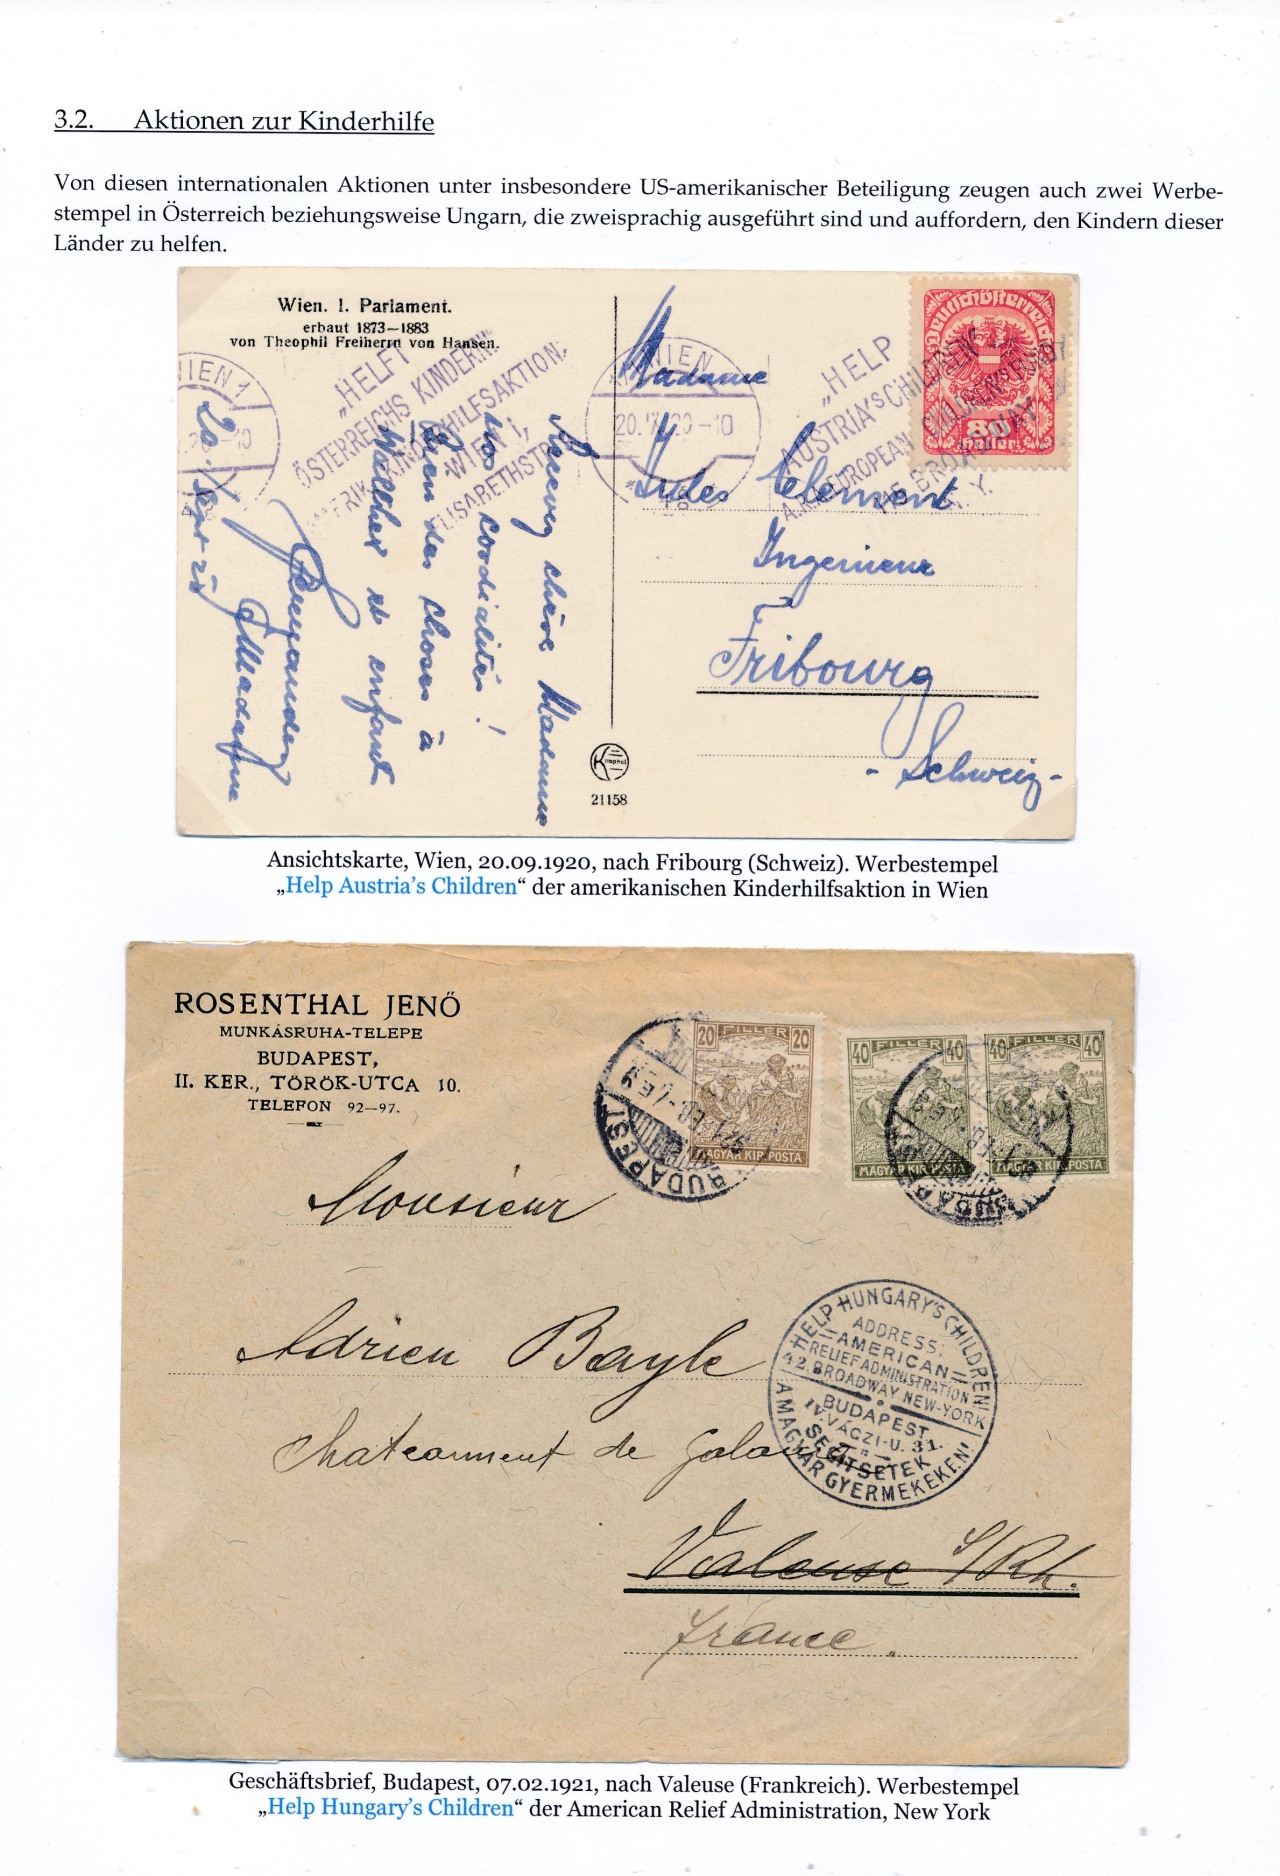 3.2. Aktionen zur Kinderhilfe
Von diesen internationalen Aktionen unter insbesondere US-amerikanischer Beteiligung zeugen auch zwei Werbe-
stempel in Österreich beziehungsweise Ungarn, die zweisprachig ausgeführt sind und auffordern, den Kindern dieser
Länder zu helfen.
Wien. I. Parlament.
erbaut 1873—1883
von Theophil Freiherrn von Hansen.
WIEN 1
„HELFT
ÖSTERREICHS KINDERN"
KINDERHILFSAKTION,
WIEN I,
ELISABETHSTR.
20 Sept 20
chère Madame
cordialités!
des choses à
et enfant
WIEN
20.IX.20-10
„HELP
AUSTRIA'S CHILDREN"
A.R.A. EUROPEAN CHILDREN'S FUND
BROADWAY
N.Y.
Deutschösterreich
80
Heller
Madame
Jules Clement
Ingenieur
Fribourg
- Schweiz -
21158
Ansichtskarte, Wien, 20.09.1920, nach Fribourg (Schweiz). Werbestempel
„Help Austria's Children“ der amerikanischen Kinderhilfsaktion in Wien
ROSENTHAL JENŐ
MUNKÁSRUHA-TELEPE
BUDAPEST,
II. KER., TÖRÖK-UTCA 10.
TELEFON 92—97.
20 FILLÉR 20
MAGYAR KIR. POSTA
40 FILLÉR 40
MAGYAR KIR. POSTA
40 FILLÉR 40
MAGYAR KIR. POSTA
BUDAPEST
BUDAPEST
Monsieur
Adrien Bayle
de
HELP HUNGARY'S CHILDREN!
ADDRESS:
AMERICAN
RELIEF ADMINISTRATION
42. BROADWAY NEW-YORK
BUDAPEST
IV. VÁCZI-U. 31.
SEGITSETEK
A MAGYAR GYERMEKEKEN!
S/Rh.
France.
Geschäftsbrief, Budapest, 07.02.1921, nach Valeuse (Frankreich). Werbestempel
„Help Hungary's Children“ der American Relief Administration, New York